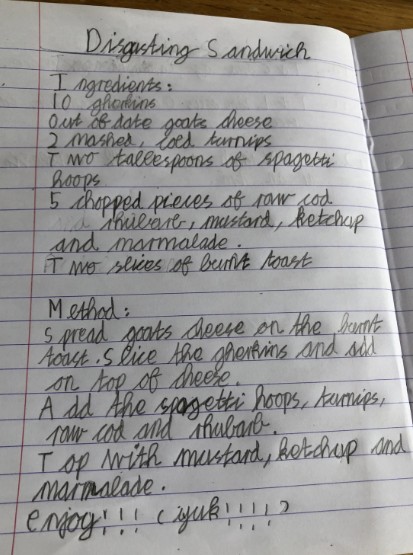 Disgusting Sandwich
Ingredients:
10 gherkins
Out of date goats cheese
2 mashed, iced turnips
Two tablespoons of spagetti
hoops
5 chopped pieces of raw cod
rhubarb, mustard, ketchup
and marmalade.
Two slices of burnt toast
Method:
Spread goats cheese on the burnt
toast. Slice the gherkins and add
on top of cheese.
Add the spagetti hoops, turnips,
raw cod and rhubarb.
Top with mustard, ketchup and
marmalade.
enjoy!!! (yuk!!!!)